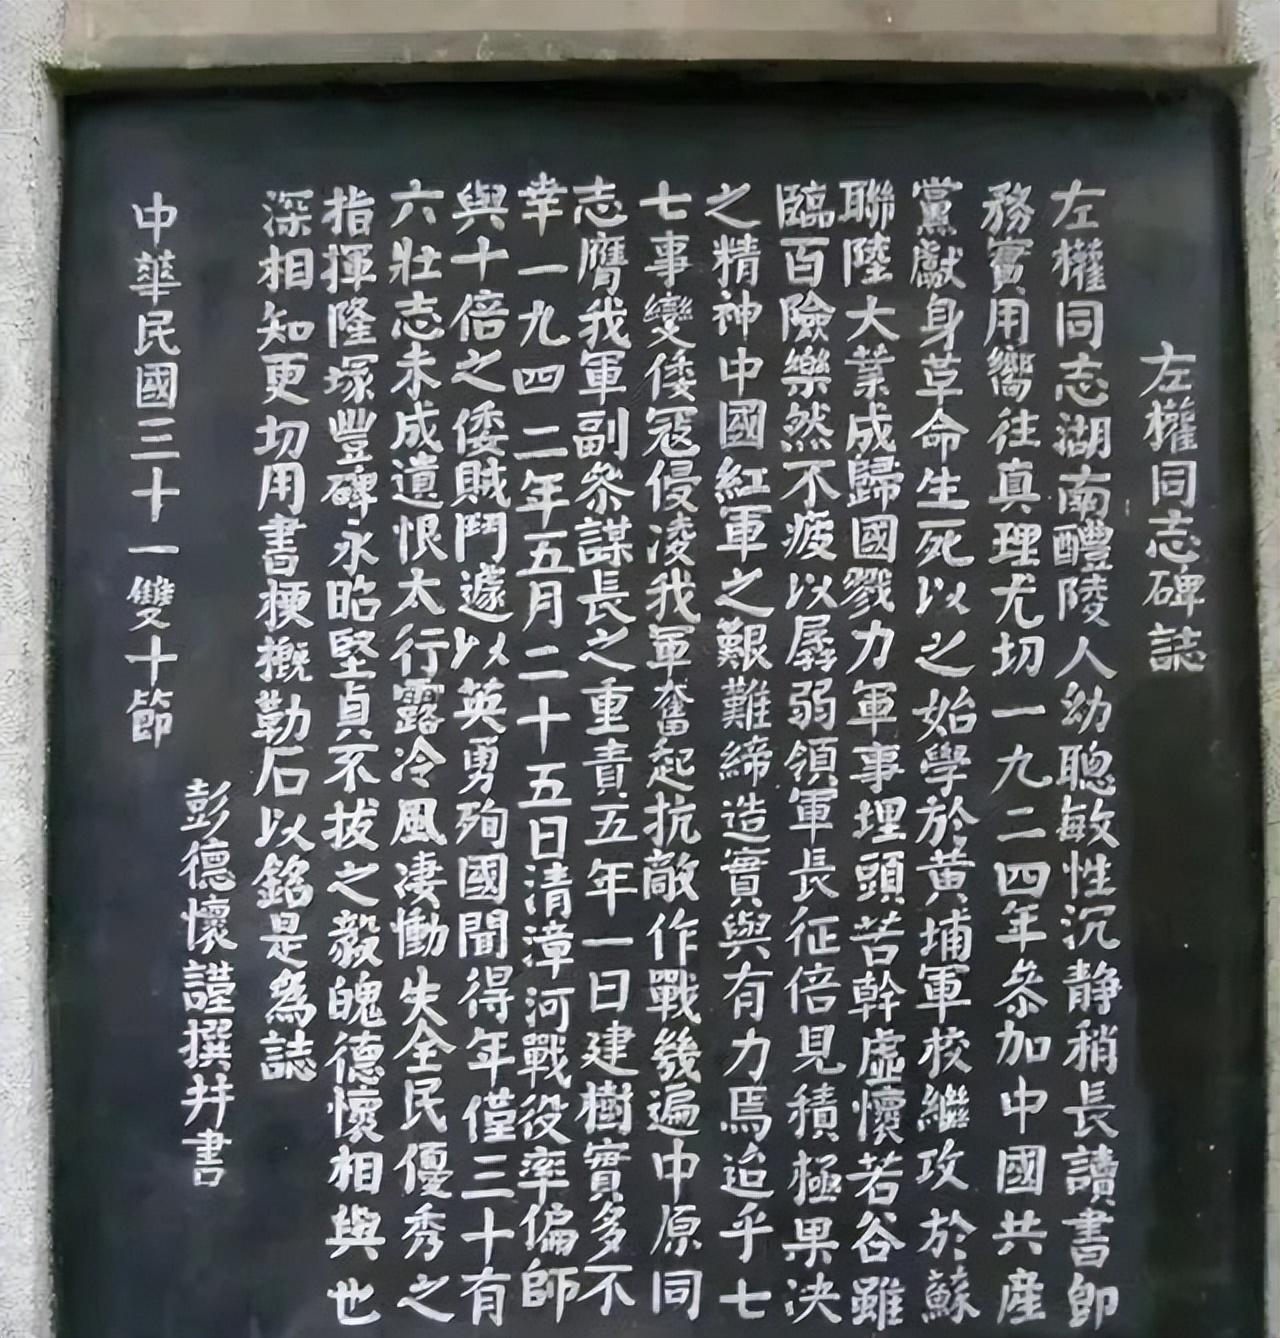 左權同志碑誌
左權同志湖南醴陵人幼聰敏性沉静稍長讀書卽
務實用嚮往真理尤切一九二四年參加中國共産
黨獻身革命生死以之始學於黄埔軍校繼攻於蘇
聯陸大業成歸國戮力軍事埋頭苦幹虛懷若谷雖
臨百險樂然不疲以孱弱領軍長征倍見積極果決
之精神中國紅軍之艱難締造實與有力焉迨乎七
七事變倭寇侵凌我軍奮起抗敵作戰幾遍中原同
志膺我軍副參謀長之重責五年一日建樹實多不
幸一九四二年五月二十五日清漳河戰役率偏師
與十倍之倭賊鬥遽以英勇殉國聞得年僅三十有
六壯志未成遺恨太行露冷風凄慟失全民優秀之
指揮隆塚豐碑永昭堅貞不拔之毅魄德懷相與也
深相知更切用書梗概勒石以銘是爲誌
彭德懷謹撰并書
中華民國三十一雙十節